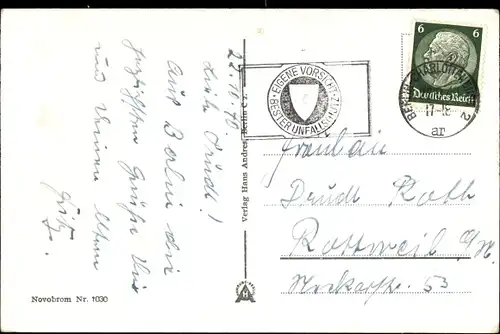 22. 11. 40
Liebe Trudl!
Aus Berlin die
herzlichsten Grüße Dir
und Deinen Eltern
Fritz
Verlag Hans Andres, Berlin C 2
EIGENE VORSICHT
BESTER UNFALLSCHUTZ
6 6
Deutsches Reich
BERLIN-CHARLOTTENBURG 2
17-18
ar
Fräulein
Trudl Roth
Rottweil a/N.
Neckarstr. 53
Novobrom Nr. 1030